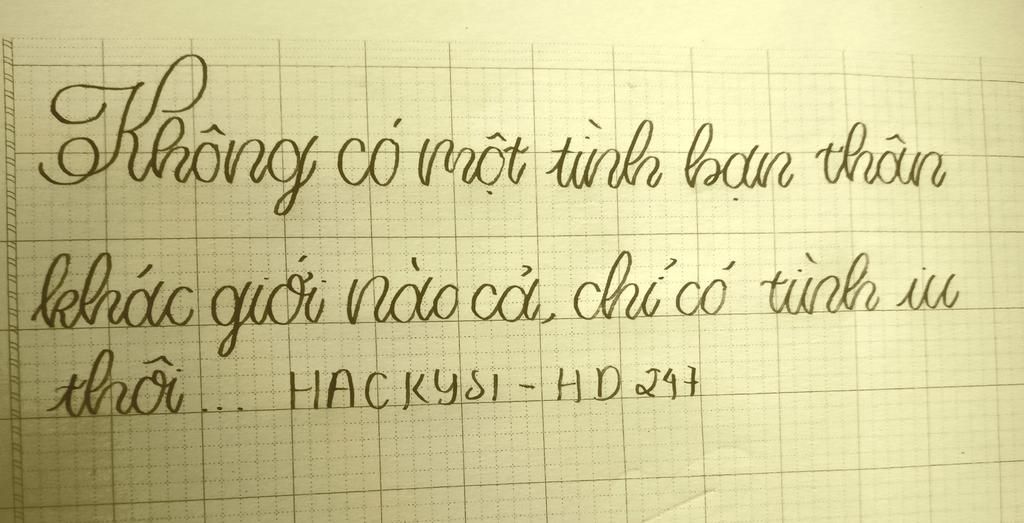 Không có một tình bạn thân
khác giới nào cả, chỉ có tình iu
thôi... HACKYSI - HD 247